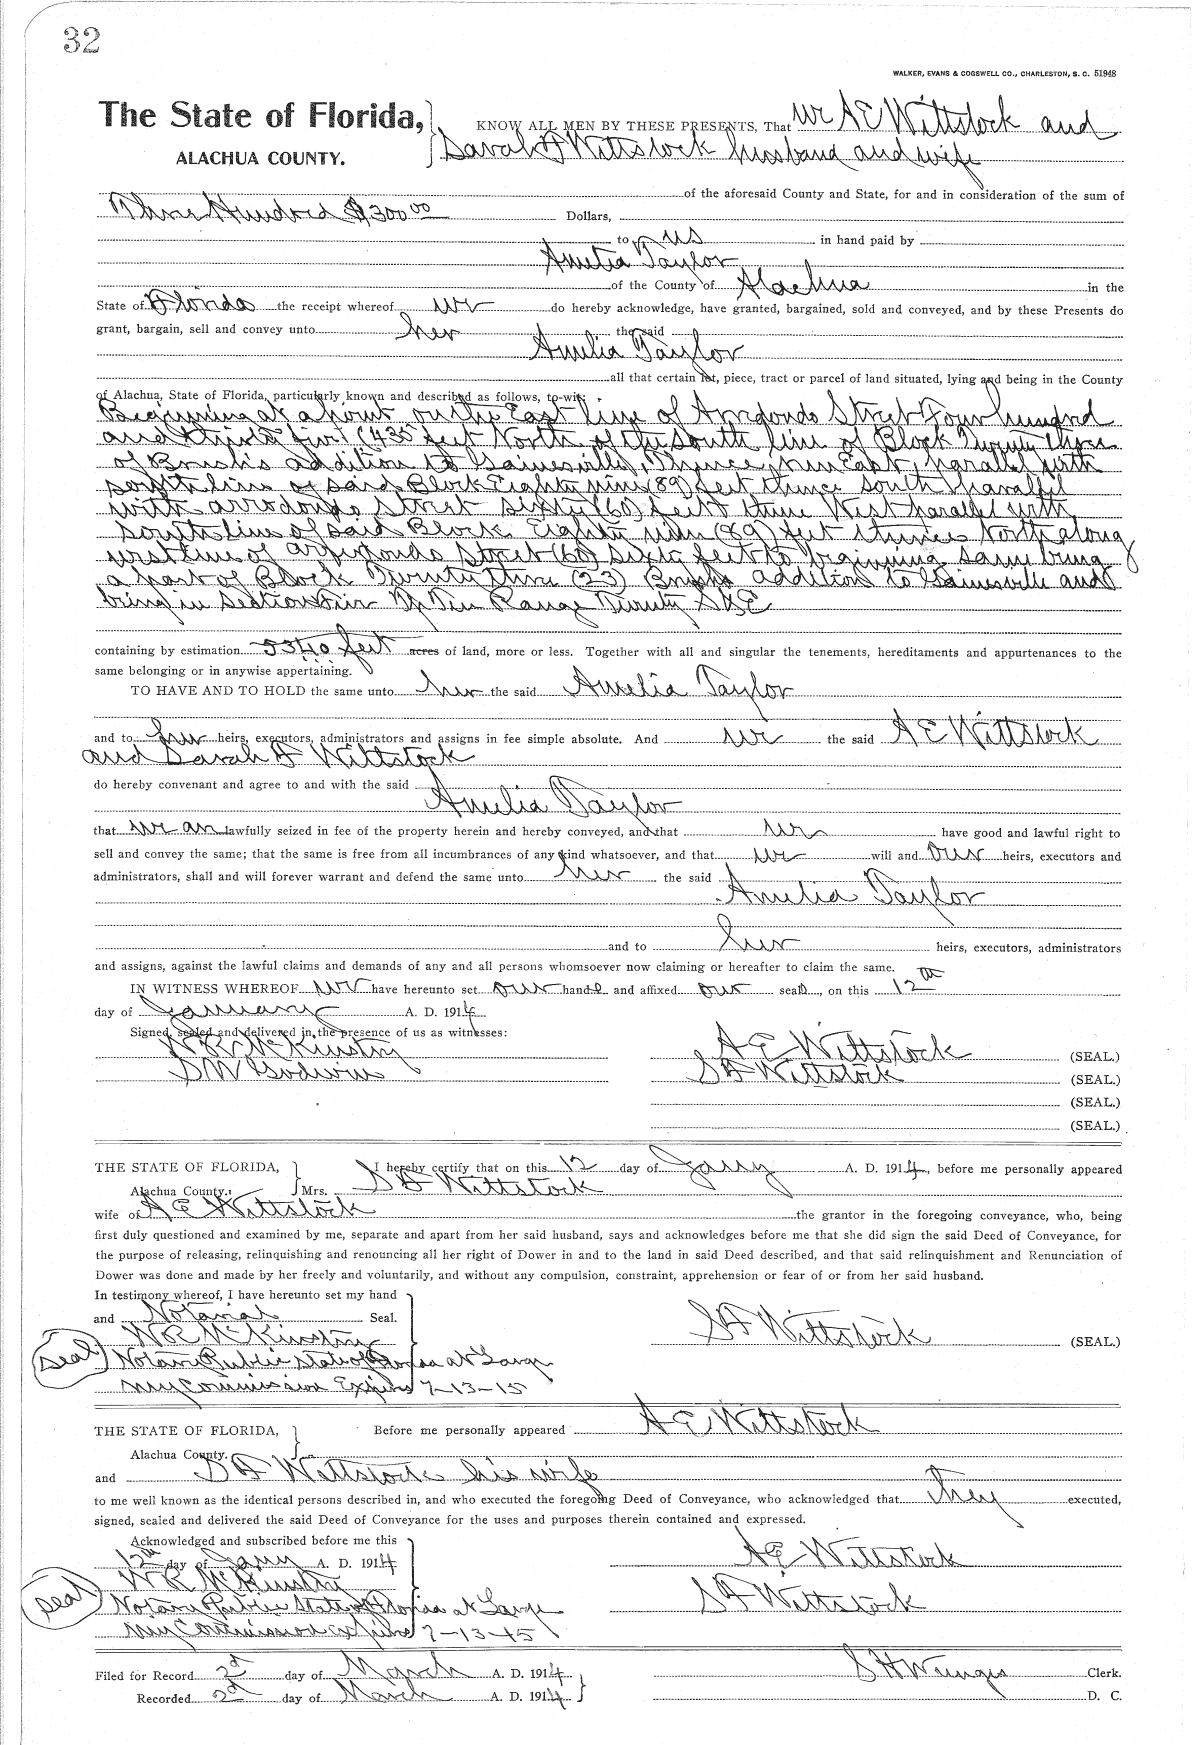 32
WALKER, EVANS & COGSWELL CO., CHARLESTON, S. C. 51948
The State of Florida,
KNOW ALL MEN BY THESE PRESENTS, That we A E Wittstock and
ALACHUA COUNTY.
Sarah F Wittstock husband and wife
of the aforesaid County and State, for and in consideration of the sum of
Three Hundred $300 00 Dollars,
to us in hand paid by
Amelia Taylor
of the County of Alachua in the
State of Florida the receipt whereof we do hereby acknowledge, have granted, bargained, sold and conveyed, and by these Presents do
grant, bargain, sell and convey unto her the said
Amelia Taylor
all that certain lot, piece, tract or parcel of land situated, lying and being in the County
of Alachua, State of Florida, particularly known and described as follows, to-wit:
Beginning at a point on the East line of Arredondo Street Four hundred
and thirty five (435 feet North of the South line of Block Twenty three
of Brush's addition to Gainesville, Thence run East, parallel with
south line of said Block Eighty nine (89) feet thence south parallel
with arredondo street sixty (60) feet thence West parallel with
south line of said Block Eighty nine (89) feet thence North along
west line of arredondo Street (60) sixty feet to beginning same being
a part of Block Twenty three (23) Brushs addition to Gainesville and
being in section four Tp Ten Range Twenty S & E
containing by estimation 5340 feet acres of land, more or less. Together with all and singular the tenements, hereditaments and appurtenances to the
same belonging or in anywise appertaining.
TO HAVE AND TO HOLD the same unto her the said Amelia Taylor
and to her heirs, executors, administrators and assigns in fee simple absolute. And we the said A E Wittstock
and Sarah F Wittstock
do hereby convenant and agree to and with the said
Amelia Taylor
that we are lawfully seized in fee of the property herein and hereby conveyed, and that we have good and lawful right to
sell and convey the same; that the same is free from all incumbrances of any kind whatsoever, and that we will and our heirs, executors and
administrators, shall and will forever warrant and defend the same unto her the said
Amelia Taylor
and to her heirs, executors, administrators
and assigns, against the lawful claims and demands of any and all persons whomsoever now claiming or hereafter to claim the same.
IN WITNESS WHEREOF we have hereunto set our hands and affixed our seals, on this 12th
day of January A. D. 1914
Signed, sealed and delivered in the presence of us as witnesses:
W R McKinstry A E Wittstock (SEAL.)
S F Wittstock (SEAL.)
(SEAL.)
(SEAL.)
THE STATE OF FLORIDA, I hereby certify that on this 12 day of Jany A. D. 1914, before me personally appeared
Alachua County. Mrs. S F Wittstock
wife of A E Wittstock the grantor in the foregoing conveyance, who, being
first duly questioned and examined by me, separate and apart from her said husband, says and acknowledges before me that she did sign the said Deed of Conveyance, for
the purpose of releasing, relinquishing and renouncing all her right of Dower in and to the land in said Deed described, and that said relinquishment and Renunciation of
Dower was done and made by her freely and voluntarily, and without any compulsion, constraint, apprehension or fear of or from her said husband.
In testimony whereof, I have hereunto set my hand
and Notarial Seal.
W R McKinstry S F Wittstock (SEAL.)
seal Notary Public State of Florida at Large
My Commission Expires 7-13-15
THE STATE OF FLORIDA, Before me personally appeared A E Wittstock
Alachua County.
and S F Wittstock his wife
to me well known as the identical persons described in, and who executed the foregoing Deed of Conveyance, who acknowledged that they executed,
signed, sealed and delivered the said Deed of Conveyance for the uses and purposes therein contained and expressed.
Acknowledged and subscribed before me this
12th day of Jany A. D. 1914 A E Wittstock
W R McKinstry
seal Notary Public State of Florida at Large S F Wittstock
My Commission expires 7-13-15
Filed for Record 2d day of March A. D. 1914 S H Wienges Clerk.
Recorded 2d day of March A. D. 1914 D. C.